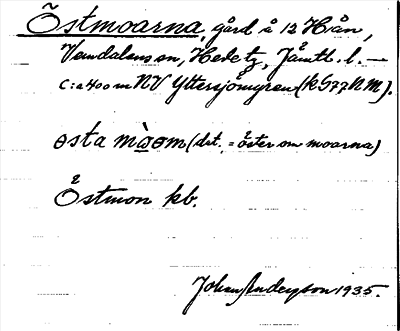 Östmoarna, gård å 12 Hån,
Vemdalens sn, Hede tg, Jämtl. l. —
c:a 400 m NV Yttersjömyren (kG77NM).
östa mòɷm (det. = öster om moarna)
Östmon kb.
Johan Anderzson 1935.